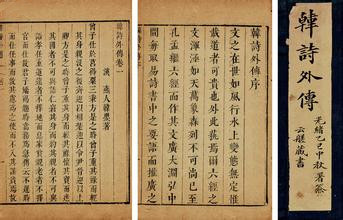 韓詩外傳
光緒乙巳中秋署簽
云艇藏書
韓詩外傳序
文之在世如風行水上變態無定惟
載道者可貴也外此莪爾六經之
文渾涵如天萬彙森列不可尚已
孔孟繼六經而作其文廣大淵弘中
間奇取易詩書中之要語而推廣之
韓詩外傳卷一
漢 燕人韓嬰著
曾子仕於莒得粟三秉方是之時曾子重其祿而輕
其身親沒之後齊迎以相楚迎以令尹晉迎以上
卿方是之時曾子重其身而輕其祿懷其寶而迷
其國者不可與語仁窘其身而約其親者不可與
語孝任重道遠者不擇地而息家貧親老者不擇
官而仕故君子橋褐趨時當務為急傳云不逢時
而仕任事而敦其慮為之使而不入其謀貧焉故